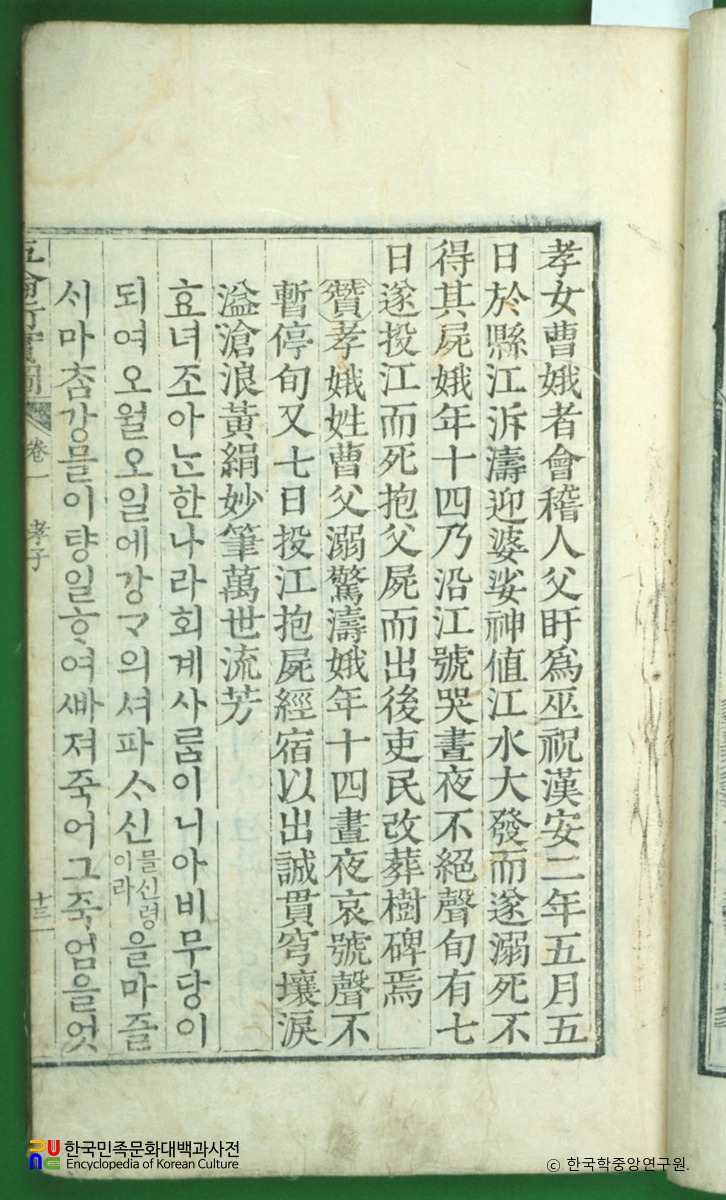 孝女曹娥者會稽人父盱爲巫祝漢安二年五月五
日於縣江泝濤迎婆娑神値江水大發而遂溺死不
得其屍娥年十四乃沿江號哭晝夜不絕聲旬有七
日遂投江而死抱父屍而出後吏民改葬樹碑焉
贊孝娥姓曹父溺驚濤娥年十四晝夜哀號聲不
暫停旬又七日投江抱屍經宿以出誠貫穹壤淚
溢滄浪黃絹妙筆萬世流芳
효녀조아ᄂᆞᆫ한나라회계사ᄅᆞᆷ이니아비무당이
되여오월오일에강ᄀᆞ의셔파ᄉᆞ신믈신령이라을마즐
ᄉᆡ마ᄎᆞᆷ강믈이턍일ᄒᆞ여ᄲᅡ져죽어그죽엄을엇
五倫行實圖 卷一 孝子 十三
한국민족문화대백과사전
Encyclopedia of Korean Culture
© 한국학중앙연구원.